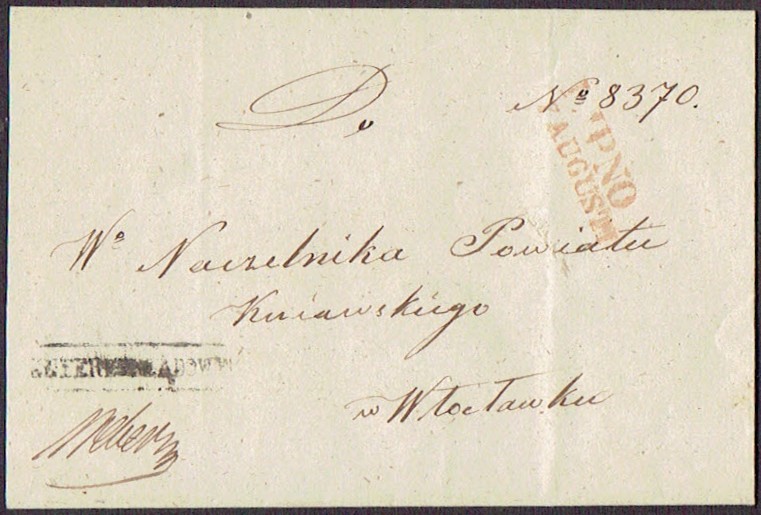 Do
No 8370.
LIPNO
AUGUST
Wo Naczelnika Powiatu
Kuiawskiego
w Włocławku